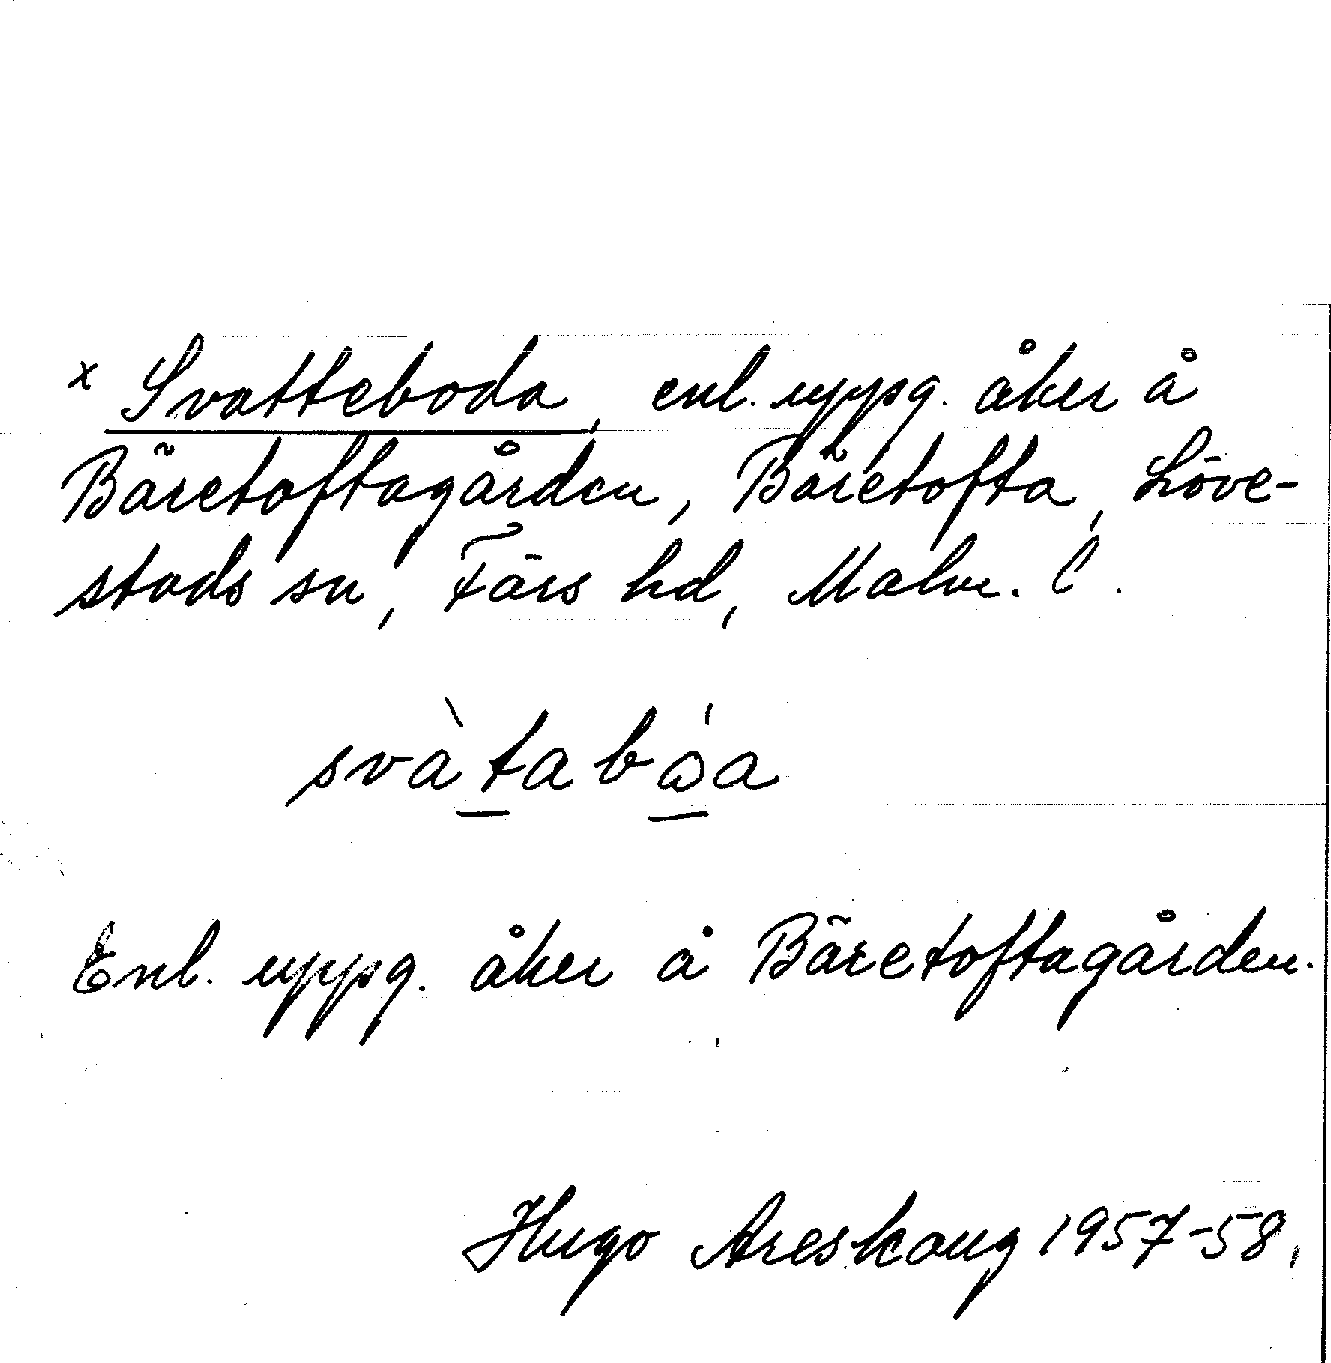 x Svatteboda, enl. uppg. åker å
Bäretoftagården, Bäretofta, Löve-
stads sn, Färs hd, Malm. l.
svàtabǫ́a
Enl. uppg. åker å Bäretoftagården.
Hugo Areskoug 1957-58.